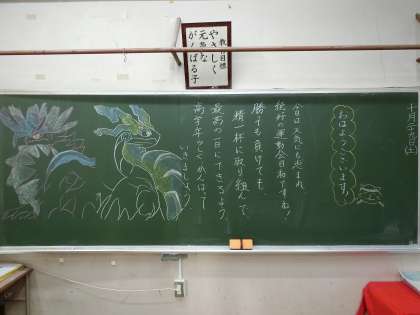 教育目標
やさしく
元気な
がんばる子
十月十九日(土)
おはようございます。
今日は天気にも恵まれ、
絶好の運動会日和ですね!
勝っても負けても、
精一杯に取り組んで、
最高の一日にできるよう、
高学年らしくがんばって
いきましょう。